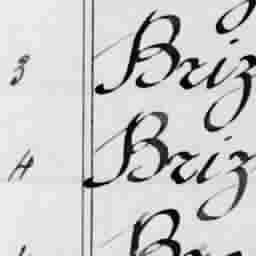 3 Briz
4 Briz